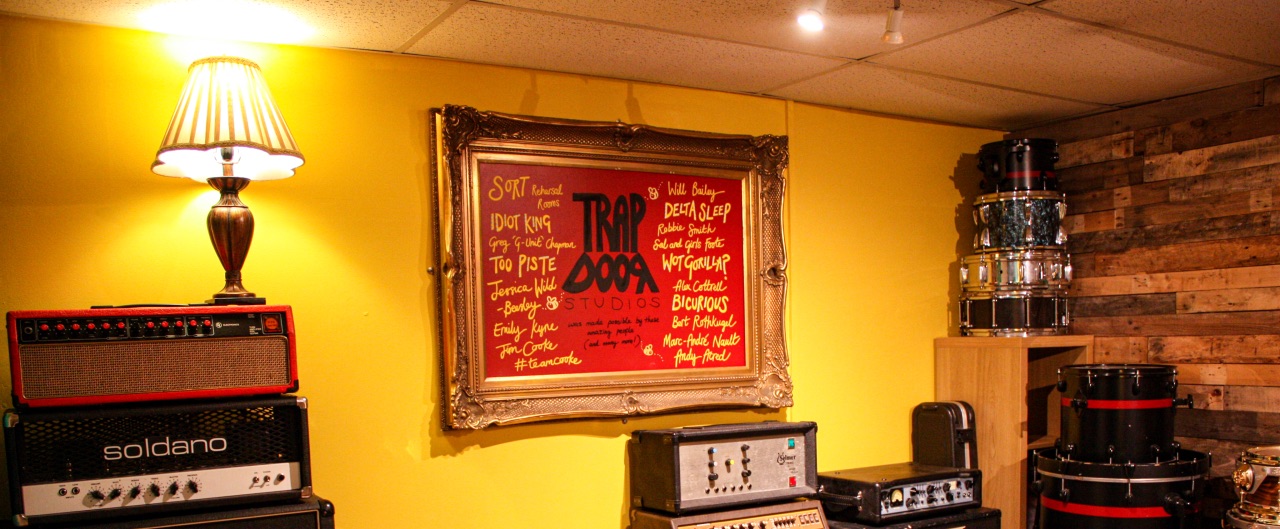 SORT Rehearsal
Rooms
IDIOT KING
Greg "G-Unit" Chapman
TOO PISTE
Jessica Wild
-Beasley
Emily Kyne
Jim Cooke
#teamcooke
TRAP
DOOR
STUDIOS
was made possible by these
amazing people
(and many more!)
Will Bailey
DELTA SLEEP
Robbie Smith
Sal and Girls Foote
WOT GORILLA?
Alex Cottrell
BICURIOUS
Bart Rothkugel
Marc-André Nault
Andy Acred
soldano
Selmer